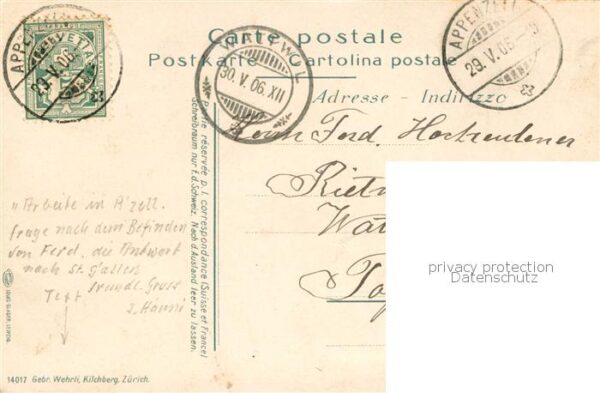 Carte postale
Postkarte Cartolina postale
Adresse - Indirizzo
APPENZELL
29.V.06
HELVETIA
WATTWIL
30.V.06.XII
APPENZELL
29.V.06
Herrn Ferd. Hochreutener
Riet
Wat
Partie réservée p. l. correspondance (Suisse et France)
Schreibraum nur f. d. Schweiz. Nach d. Ausland leer zu lassen.
"Arbeite in A'zell.
frage nach dem Befinden
von Ferd. die Antwort
nach St. Gallen
freundl. Gruss
J. Hänni
Text
privacy protection
Datenschutz
14017 Gebr. Wehrli, Kilchberg, Zürich.